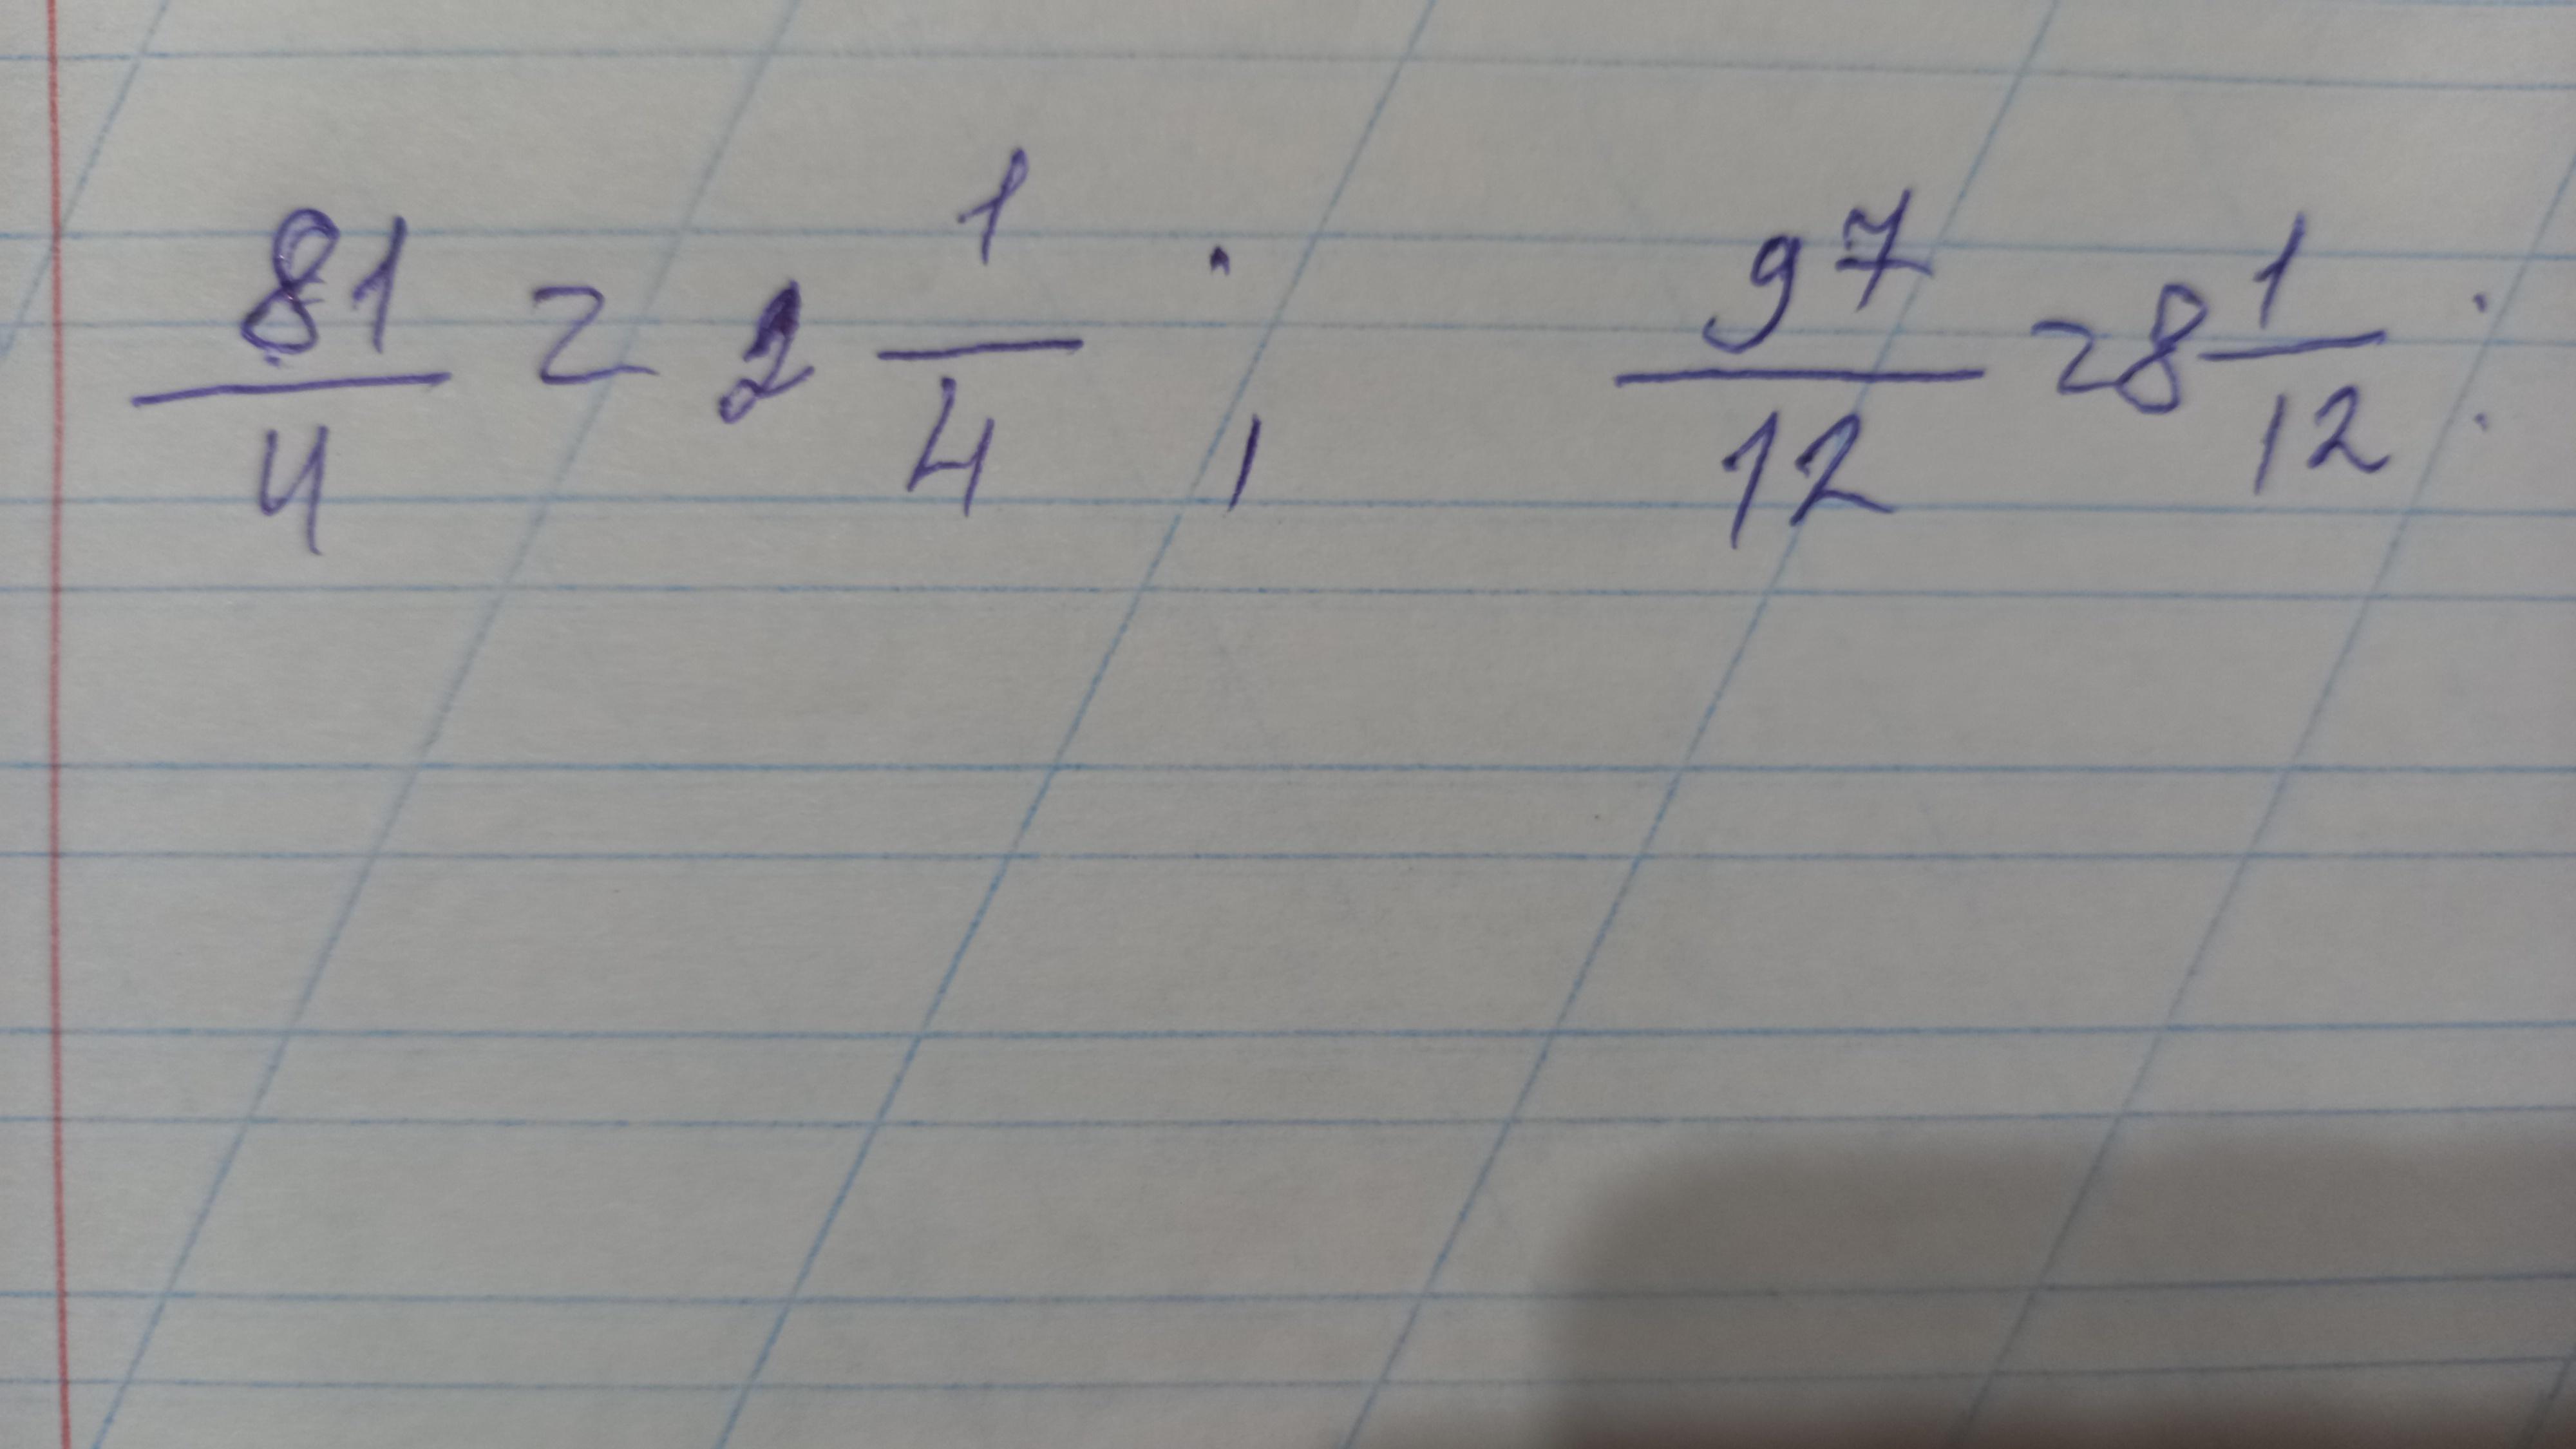 81/4 = 2 1/4 ; 97/12 = 8 1/12 :